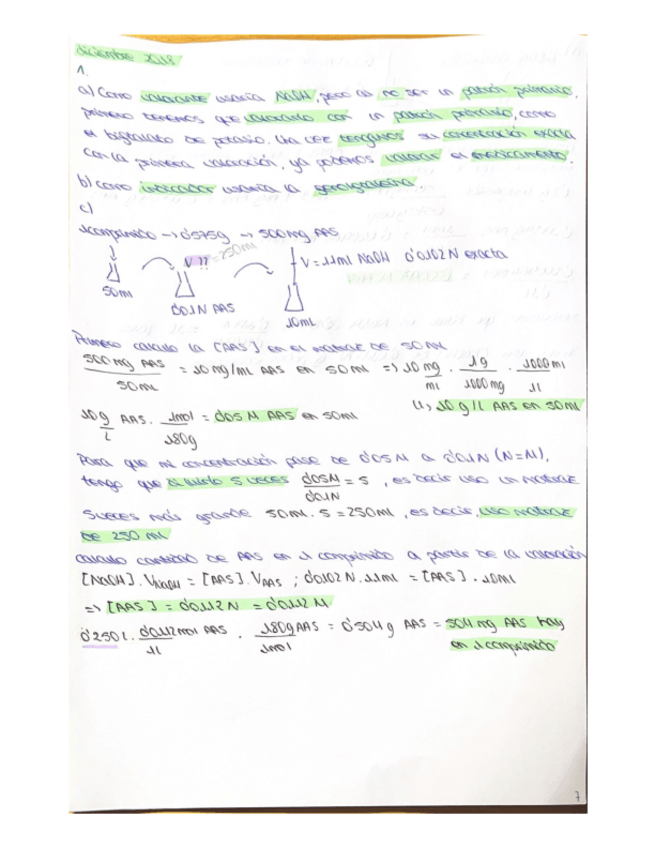 diciembre 2018
1.
a) Como valorante usaría NaOH, pero al no ser un patrón primario,
primero tenemos que valorarlo con un patrón primario, como
el biftalato de potasio. Una vez tengamos su concentración exacta
con la primera valoración, ya podemos valorar el medicamento.
b) como indicador usaría la
c)
1comprimido → 0'575g → 500mg AAS
V ?? = 250ml
V = 11ml NaOH 0'0102 N exacta
50ml
0'01N AAS
10mL
Primero calculo la [AAS] en el matraz de 50 ml
500 mg AAS / 50mL = 10 mg/mL AAS en 50ml => 10 mg/ml · 1g/1000mg · 1000ml/1l
↳ 10 g/L AAS en 50ml
10g/L AAS · 1mol/180g = 0'05 M AAS en 50ml
Para que mi concentración pase de 0'05M a 0'01N (N=M),
tengo que diluirlo 5 veces 0'05M/0'01N = 5, es decir uso un matraz
5 veces más grande 50ml · 5 = 250ml, es decir, uso matraz
de 250 ml
calculo cantidad de AAS en 1 comprimido a partir de la valoración
[NaOH] · VNaOH = [AAS] · VAAS ; 0'0102N · 11ml = [AAS] · 10ml
=> [AAS] = 0'0112N = 0'0112M
0'250l · 0'0112mol AAS/1l · 180g AAS/1mol = 0'504g AAS = 504 mg AAS hay
en 1 comprimido
7